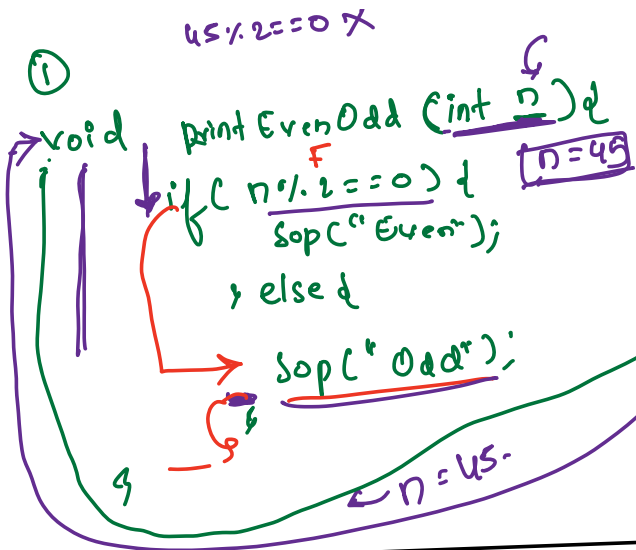 45%2==0 X
1
void printEvenOdd (int n) {
n=45
F
if( n%2==0) {
Sop("Even");
} else {
Sop("Odd");
}
}
n=45.